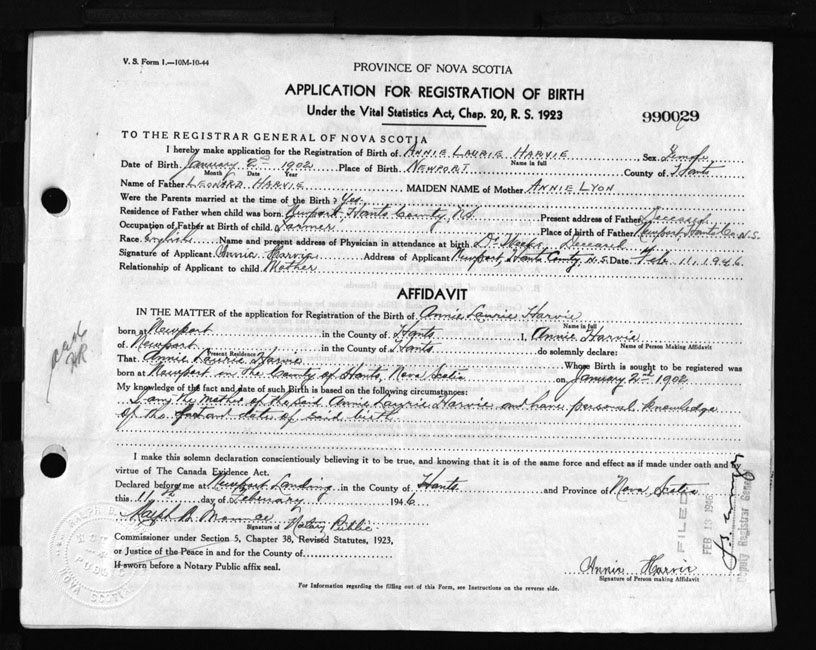 V. S. Form 1.—10M-10-44
PROVINCE OF NOVA SCOTIA
APPLICATION FOR REGISTRATION OF BIRTH
Under the Vital Statistics Act, Chap. 20, R. S. 1923
990029
TO THE REGISTRAR GENERAL OF NOVA SCOTIA
I hereby make application for the Registration of Birth of ANNIE LAURIE HARVIE Sex Female
Name in full
Date of Birth January 2nd 1902 Place of Birth NEWPORT County of Hants
Month Date Year
Name of Father LEONARD HARVIE MAIDEN NAME of Mother ANNIE LYON
Were the Parents married at time of the Birth? Yes
Residence of Father when child was born Newport Hants County N.S. Present address of Father Deceased
Occupation of Father at Birth of child Farmer Place of birth of Father Newport Hants Co. N.S.
Race English Name and present address of Physician in attendance at birth Dr Deceased
Signature of Applicant Annie Harvie Address of Applicant Newport, Hants County, N.S. Date Feb. 11, 1946
Relationship of Applicant to child Mother
AFFIDAVIT
IN THE MATTER of the application for Registration of the Birth of Annie Laurie Harvie
Name in full
born at Newport in the County of Hants I, Annie Harvie
Name of Person Making Affidavit
of Newport in the County of Hants do solemnly declare:
Present Residence
That Annie Laurie Harvie Whose Birth is sought to be registered was
born at Newport in the County of Hants, Nova Scotia on January 2nd 1902
My knowledge of the fact and date of such Birth is based on the following circumstances:
I am the Mother of the said Annie Laurie Harvie and have personal knowledge
of the fact and date of said birth.
I make this solemn declaration conscientiously believing it to be true, and knowing that it is of the same force and effect as if made under oath and by
virtue of The Canada Evidence Act.
Declared before me at Newport Landing in the County of Hants and Province of Nova Scotia
this 11th day of February 1946
Ralph B.
Signature of Notary Public
Commissioner under Section 5, Chapter 38, Revised Statutes, 1923,
or Justice of the Peace in and for County of
If sworn before a Notary Public affix seal.
FILED
FEB 13 1946
Deputy Registrar General
Annie Harvie
Signature of Person making Affidavit
For Information regarding the filling out of this Form, see Instructions on the reverse side.
NOVA SCOTIA